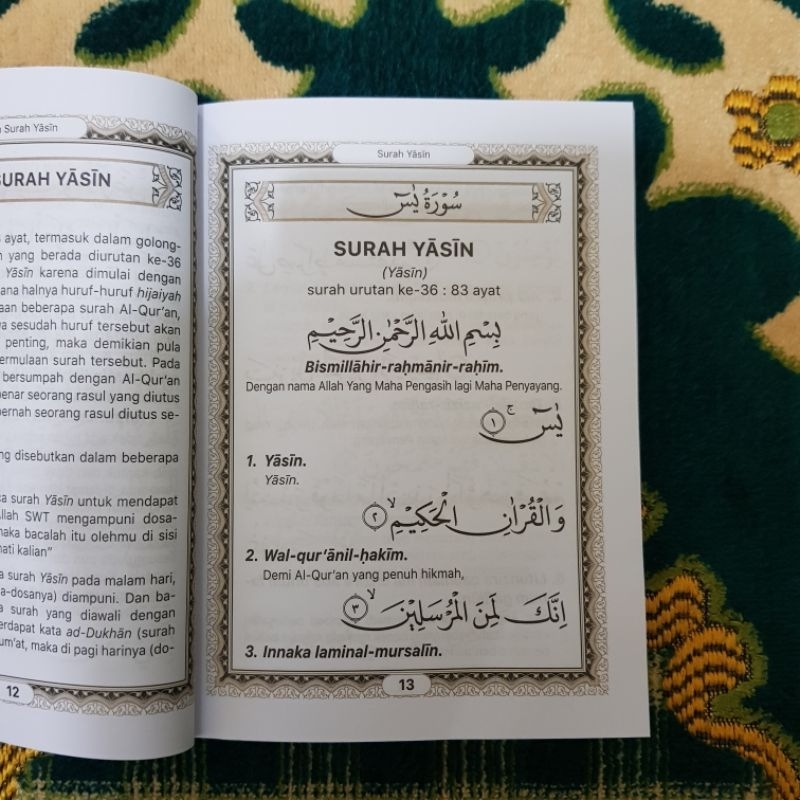 Surah Yāsīn
SURAH YĀSĪN
ayat, termasuk dalam golong-
yang berada diurutan ke-36
Yāsīn karena dimulai dengan
halnya huruf-huruf hijaiyah
beberapa surah Al-Qur'an,
sesudah huruf tersebut akan
penting, maka demikian pula
surah tersebut. Pada
bersumpah dengan Al-Qur'an
seorang rasul yang diutus
seorang rasul diutus se-
disebutkan dalam beberapa
surah Yāsīn untuk mendapat
SWT mengampuni dosa-
bacalah itu olehmu di sisi
kalian"
surah Yāsīn pada malam hari,
diampuni. Dan ba-
surah yang diawali dengan
kata ad-Dukhān (surah
maka di pagi harinya (do-
12
Surah Yāsīn
سُوْرَةُ يٰسۤ
SURAH YĀSĪN
(Yāsīn)
surah urutan ke-36 : 83 ayat
بِسْمِ اللّٰهِ الرَّحْمٰنِ الرَّحِيْمِ
Bismillāhir-raḥmānir-raḥīm.
Dengan nama Allah Yang Maha Pengasih lagi Maha Penyayang.
يٰسۤ ۚ ﴿١﴾
1. Yāsīn.
Yāsīn.
وَالْقُرْاٰنِ الْحَكِيْمِۙ ﴿٢﴾
2. Wal-qur'ānil-ḥakīm.
Demi Al-Qur'an yang penuh hikmah,
اِنَّكَ لَمِنَ الْمُرْسَلِيْنَۙ ﴿٣﴾
3. Innaka laminal-mursalīn.
13